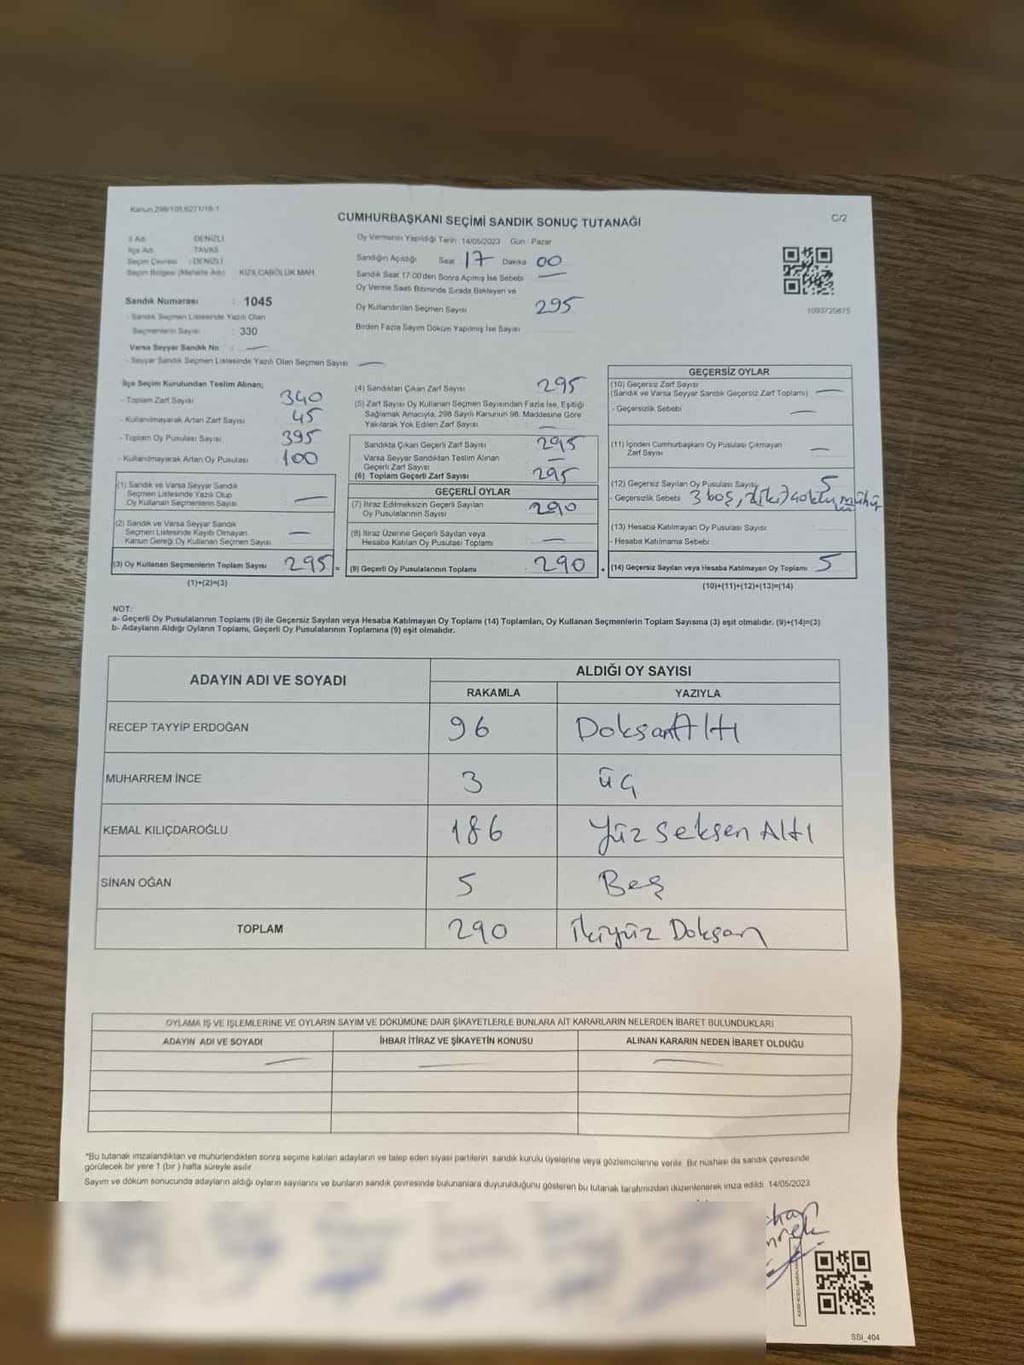 Kanun 298/105,6271/18-1
CUMHURBAŞKANI SEÇİMİ SANDIK SONUÇ TUTANAĞI
C/2
İl Adı : DENİZLİ
İlçe Adı : TAVAS
Seçim Çevresi : DENİZLİ
Seçim Bölgesi (Mahalle Adı) : KIZILCABÖLÜK MAH.
Sandık Numarası : 1045
- Sandık Seçmen Listesinde Yazılı Olan
Seçmenlerin Sayısı : 330
Varsa Seyyar Sandık No : —
- Seyyar Sandık Seçmen Listesinde Yazılı Olan Seçmen Sayısı : —
Oy Vermenin Yapıldığı Tarih : 14/05/2023 Gün : Pazar
Sandığın Açıldığı Saat 17 Dakika 00
Sandık Saat 17:00'den Sonra Açılmış İse Sebebi : —
Oy Verme Saati Bitiminde Sırada Bekleyen ve
Oy Kullandırılan Seçmen Sayısı : 295
Birden Fazla Sayım Döküm Yapılmış İse Sayısı :
1093720875
İlçe Seçim Kurulundan Teslim Alınan;
- Toplam Zarf Sayısı : 340
- Kullanılmayarak Artan Zarf Sayısı : 45
- Toplam Oy Pusulası Sayısı : 395
- Kullanılmayarak Artan Oy Pusulası : 100
(1) Sandık ve Varsa Seyyar Sandık
Seçmen Listesinde Yazılı Olup
Oy Kullanan Seçmenlerin Sayısı : —
(2) Sandık ve Varsa Seyyar Sandık
Seçmen Listesinde Kayıtlı Olmayan
Kanun Gereği Oy Kullanan Seçmen Sayısı : —
(3) Oy Kullanan Seçmenlerin Toplam Sayısı : 295 =
(1)+(2)=(3)
(4) Sandıktan Çıkan Zarf Sayısı : 295
(5) Zarf Sayısı Oy Kullanan Seçmen Sayısından Fazla İse, Eşitliği
Sağlamak Amacıyla, 298 Sayılı Kanunun 98. Maddesine Göre
Yakılarak Yok Edilen Zarf Sayısı : —
Sandıkta Çıkan Geçerli Zarf Sayısı : 295
Varsa Seyyar Sandıktan Teslim Alınan
Geçerli Zarf Sayısı : —
(6) Toplam Geçerli Zarf Sayısı : 295
GEÇERLİ OYLAR
(7) İtiraz Edilmeksizin Geçerli Sayılan
Oy Pusulalarının Sayısı : 290
(8) İtiraz Üzerine Geçerli Sayılan veya
Hesaba Katılan Oy Pusulası Toplamı : —
(9) Geçerli Oy Pusulalarının Toplamı : 290 +
GEÇERSİZ OYLAR
(10) Geçersiz Zarf Sayısı
(Sandık ve Varsa Seyyar Sandık Geçersiz Zarf Toplamı) : —
- Geçersizlik Sebebi : —
(11) İçinden Cumhurbaşkanı Oy Pusulası Çıkmayan
Zarf Sayısı : —
(12) Geçersiz Sayılan Oy Pusulası Sayısı : 5
- Geçersizlik Sebebi : 3 boş, 2(iki) çoklu mühür
(13) Hesaba Katılmayan Oy Pusulası Sayısı :
- Hesaba Katılmama Sebebi :
(14) Geçersiz Sayılan veya Hesaba Katılmayan Oy Toplamı : 5
(10)+(11)+(12)+(13)=(14)
NOT:
a- Geçerli Oy Pusulalarının Toplamı (9) ile Geçersiz Sayılan veya Hesaba Katılmayan Oy Toplamı (14) Toplamları, Oy Kullanan Seçmenlerin Toplam Sayısına (3) eşit olmalıdır. (9)+(14)=(3)
b- Adayların Aldığı Oyların Toplamı, Geçerli Oy Pusulalarının Toplamına (9) eşit olmalıdır.
ADAYIN ADI VE SOYADI
ALDIĞI OY SAYISI
RAKAMLA YAZIYLA
RECEP TAYYİP ERDOĞAN 96 Doksan Altı
MUHARREM İNCE 3 üç
KEMAL KILIÇDAROĞLU 186 Yüz Seksen Altı
SİNAN OĞAN 5 Beş
TOPLAM 290 İkiyüz Doksan
OYLAMA İŞ VE İŞLEMLERİNE VE OYLARIN SAYIM VE DÖKÜMÜNE DAİR ŞİKAYETLERLE BUNLARA AİT KARARLARIN NELERDEN İBARET BULUNDUKLARI
ADAYIN ADI VE SOYADI İHBAR İTİRAZ VE ŞİKAYETİN KONUSU ALINAN KARARIN NEDEN İBARET OLDUĞU
— — —
*Bu tutanak imzalandıktan ve mühürlendikten sonra seçime katılan adayların ve talep eden siyasi partilerin sandık kurulu üyelerine veya gözlemcilerine verilir. Bir nüshası da sandık çevresinde
görülecek bir yere 1 (bir) hafta süreyle asılır.
Sayım ve döküm sonucunda adayların aldığı oyların sayılarını ve bunların sandık çevresinde bulunanlara duyurulduğunu gösteren bu tutanak tarafımızdan düzenlenerek imza edildi. 14/05/2023
SSI_404